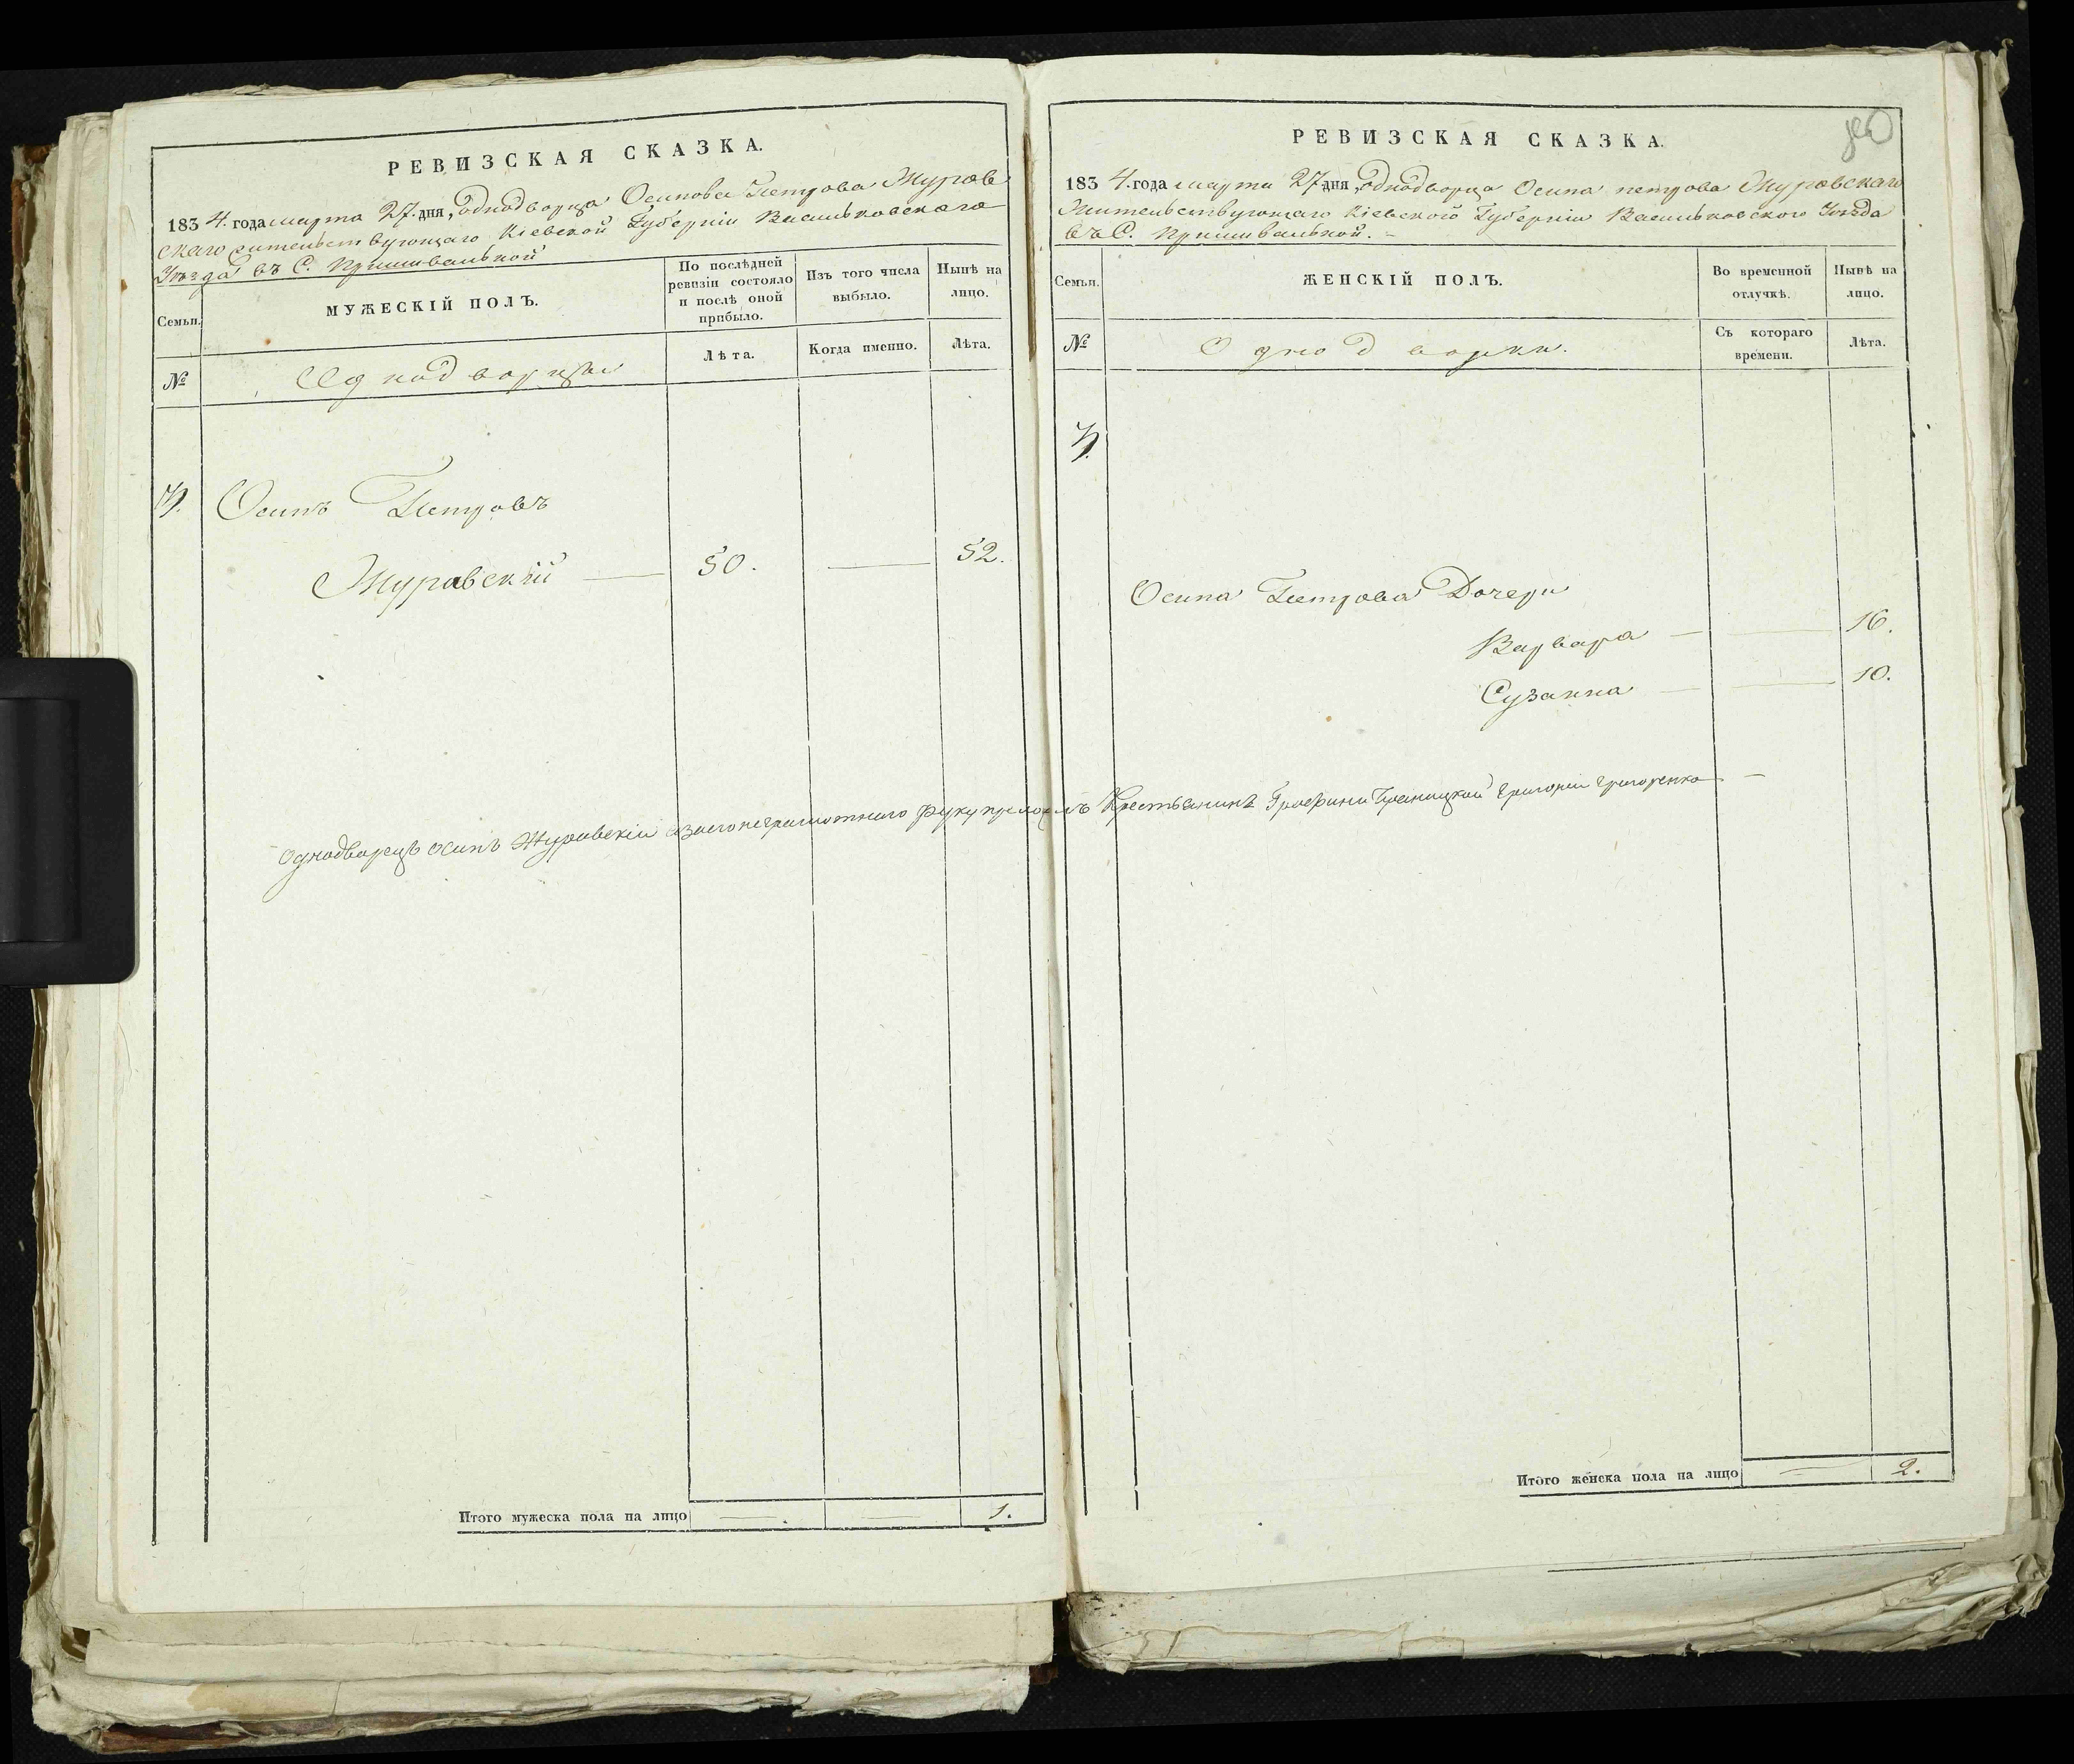 РЕВИЗСКАЯ СКАЗКА.
1834. года марта 27. дня, Однодворца Осипова Петрова Журав
скаго жительствующаго Кіевской Губерніи Васильковскаго
Уѣзда въ С.
Семьи.
МУЖЕСКІЙ ПОЛЪ.
По послѣдней ревизіи состояло и послѣ оной прибыло.
Изъ того числа выбыло.
Нынѣ на лицо.
№
Однодворцы
Лѣта.
Когда именно.
Лѣта.
Осипъ Петровъ
Журавскій — 50. — 52.
Однодворецъ осипъ Журавскій азаегонеграмотнаго руку приложилъ Крестьянинъ Графини Браницкой Григорій Григоренко —
Итого мужеска пола на лицо — . — 1.
РЕВИЗСКАЯ СКАЗКА.
1834. года марта 27 дня, однодворца Осипа петрова Журавскаго
Жительствующаго Кіевской Губерніи Васильковского Уѣзда
въ С.
Семьи.
ЖЕНСКІЙ ПОЛЪ.
Во временной отлучкѣ.
Нынѣ на лицо.
№
Однодворки.
Съ котораго времени.
Лѣта.
Осипа Петрова Дочери
Варвара — — 16.
Сузанна — — 10.
Итого женска пола на лицо — 2.